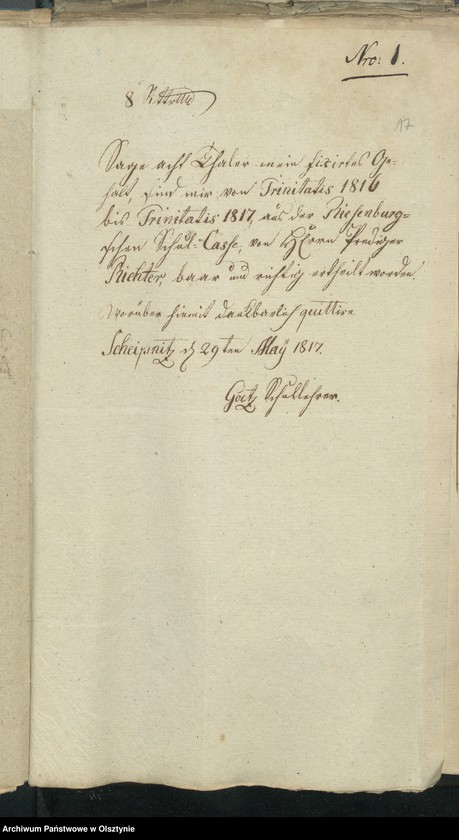 Nro: 1.
8 Rthlr
17
Sage acht Thaler mein fixirtes Ge-
halt, sind mir von Trinitatis 1816
bis Trinitatis 1817, aus der Riesenburg-
schen Schul-Casse, von HErrn Prediger
Richter, baar und richtig ertheilt worden.
Worüber hiemit dankbarlich quittire
Scheipnitz d 29ten May 1817.
Goetz Schullehrer.
Archiwum Państwowe w Olsztynie